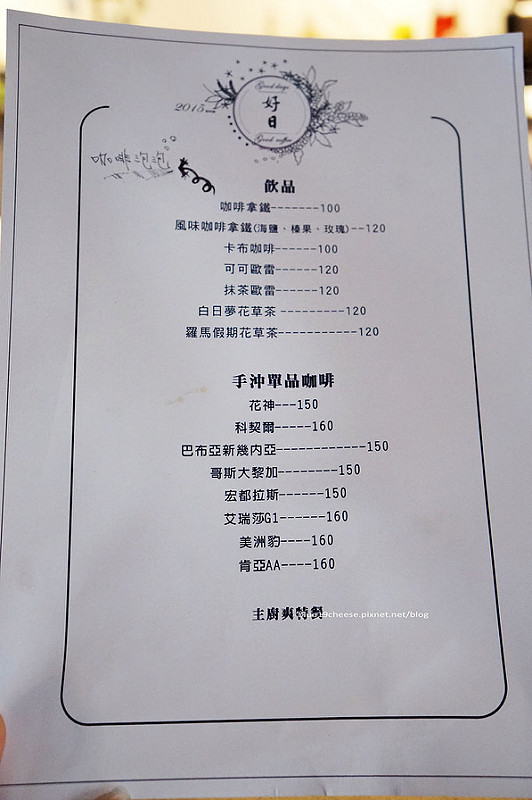 Good days
2015
好
日
Good coffee
咖啡泡泡
飲品
咖啡拿鐵-------100
風味咖啡拿鐵(海鹽、榛果、玫瑰)--120
卡布咖啡------100
可可歐雷------120
抹茶歐雷------120
白日夢花草茶 ---------120
羅馬假期花草茶-----------120
手沖單品咖啡
花神---150
科契爾-----160
巴布亞新幾內亞------------150
哥斯大黎加--------150
宏都拉斯------150
艾瑞莎G1------160
美洲豹----160
肯亞AA----160
主廚爽特餐
cheese.pixnet.net/blog